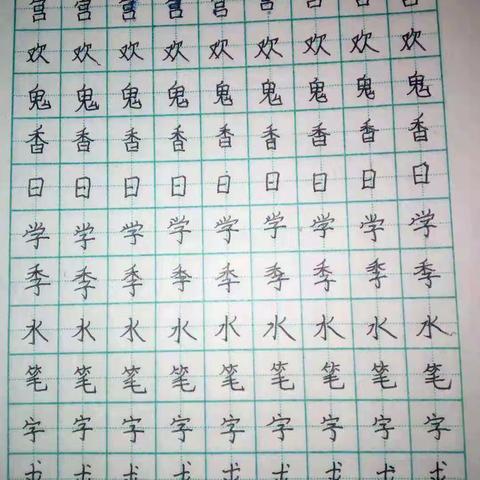 欢欢欢欢欢欢欢欢欢
鬼鬼鬼鬼鬼鬼鬼鬼鬼
香香香香香香香香香
日日日日日日日日日
学学学学学学学学学
季季季季季季季季季
水水水水水水水水水
笔笔笔笔笔笔笔笔笔
字字字字字字字字字